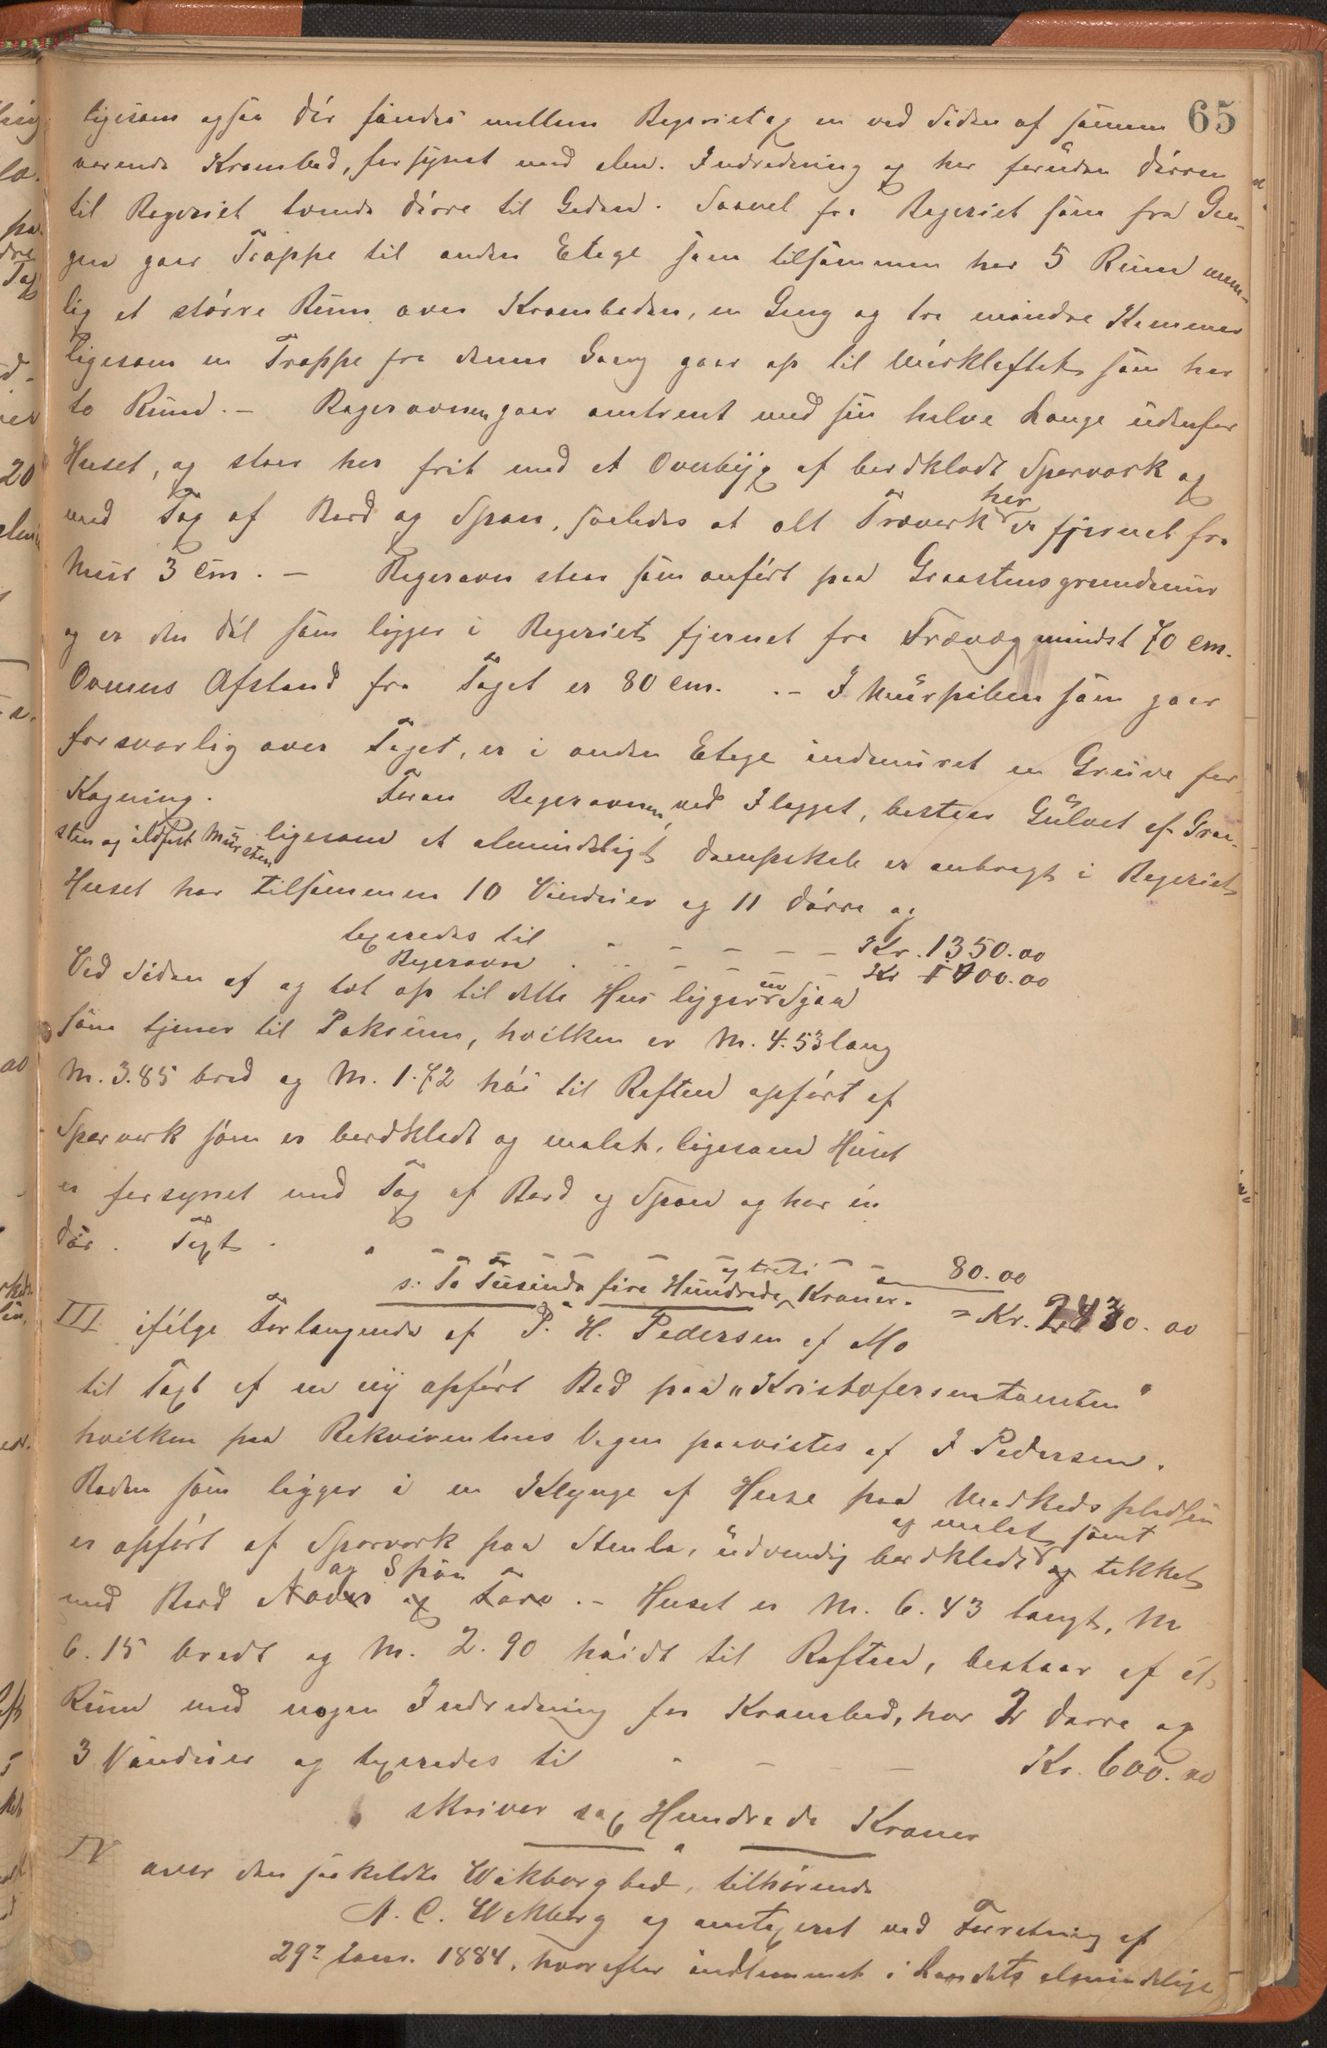 65
ligesom ogsaa dér findes mellem Bageriet og en ved Siden af samme
værende Krambod, forsynet med alm. Indredning og har foruden Dören
til Bageriet tvende Dörre til Gaden. Saavel fra Bageriet som fra Gan-
gen gaar Trappe til anden Etage som tilsammen har 5 Rum nem-
lig et större Rum over Kramboden, en Gang og tre mindre Kammer
ligesom en Trappe fra denne Gang gaar op til Mörkloftet som har
to Rum. — Bagerovnen gaar omtrent med sin halve Længe udenfor
Huset, og staar her frit med et Overbyg af bordklædt Sperværk og
med Tag af Bord og Spon, saaledes at alt Træværk her er fjernet fra
Mur 3 cm. — Bagerovn staar som anfört paa Graastensgrundmur
og er den Dél som ligger i Bageriet fjernet fra Trævæg mindst 70 cm.
Ovnens Afstand fra Taget er 80 cm. . — I Murpiben som gaar
forsvarlig over Taget, er i anden Etage indmuret en Gruve for
Kogning. Foran Bagerovnen, ved Ilægget, bestaar Gulvet af Graa-
sten og ildfast Mursten ligesom et almindeligt Dampskab er anbragt i Bageriet
Huset har tilsammen 10 Vinduer og 11 Dörre og
taxeredes til - - - - Kr. 1350.00
Bagerovn - - - - Kr 00.00
Ved Siden af og tæt op til dette Hus ligger en Sjaa
som tjener til Pakrum, hvilken er M. 4.53 lang
M. 3.85 bred og M. 1.72 höi til Raften opfört af
Sperværk som er bordklædt og malet, ligesom Huset
er forsynet med Tag af Bord og Spon og har én
Dör. Taxt - - - - 80.00
s: To Tusinde fire Hundrede og treti Kroner. = Kr. 2430.00
III ifölge Forlangende af P. H. Pedersen af Mo
til Taxt af en ny opfört Bod paa "Kristofersentomten"
hvilken paa Rekvirentens Vegne paavistes af I Pedersen.
Boden som ligger i en Klynge af Huse paa Markedspladsen
er opfört af Sperværk paa Stenla, udvendig bordklædt og malet samt tækket
med Bord og Spon. — Huset er M. 6.43 langt, M
6.15 bredt og M. 2.90 höidt til Raften, bestaar af ét
Rum med nogen Indredning for Krambod, har 2 Dörre og
3 Vinduer og taxeredes til - - - - Kr. 600.00
skriver sex Hundrede Kroner
IV over den saakaldte Wikborgbod, tilhörende
A. C. Wikborg og omtaxeret ved Forretning af
29de Jan. 1884, hvorefter indlemmet i Landets almindelige